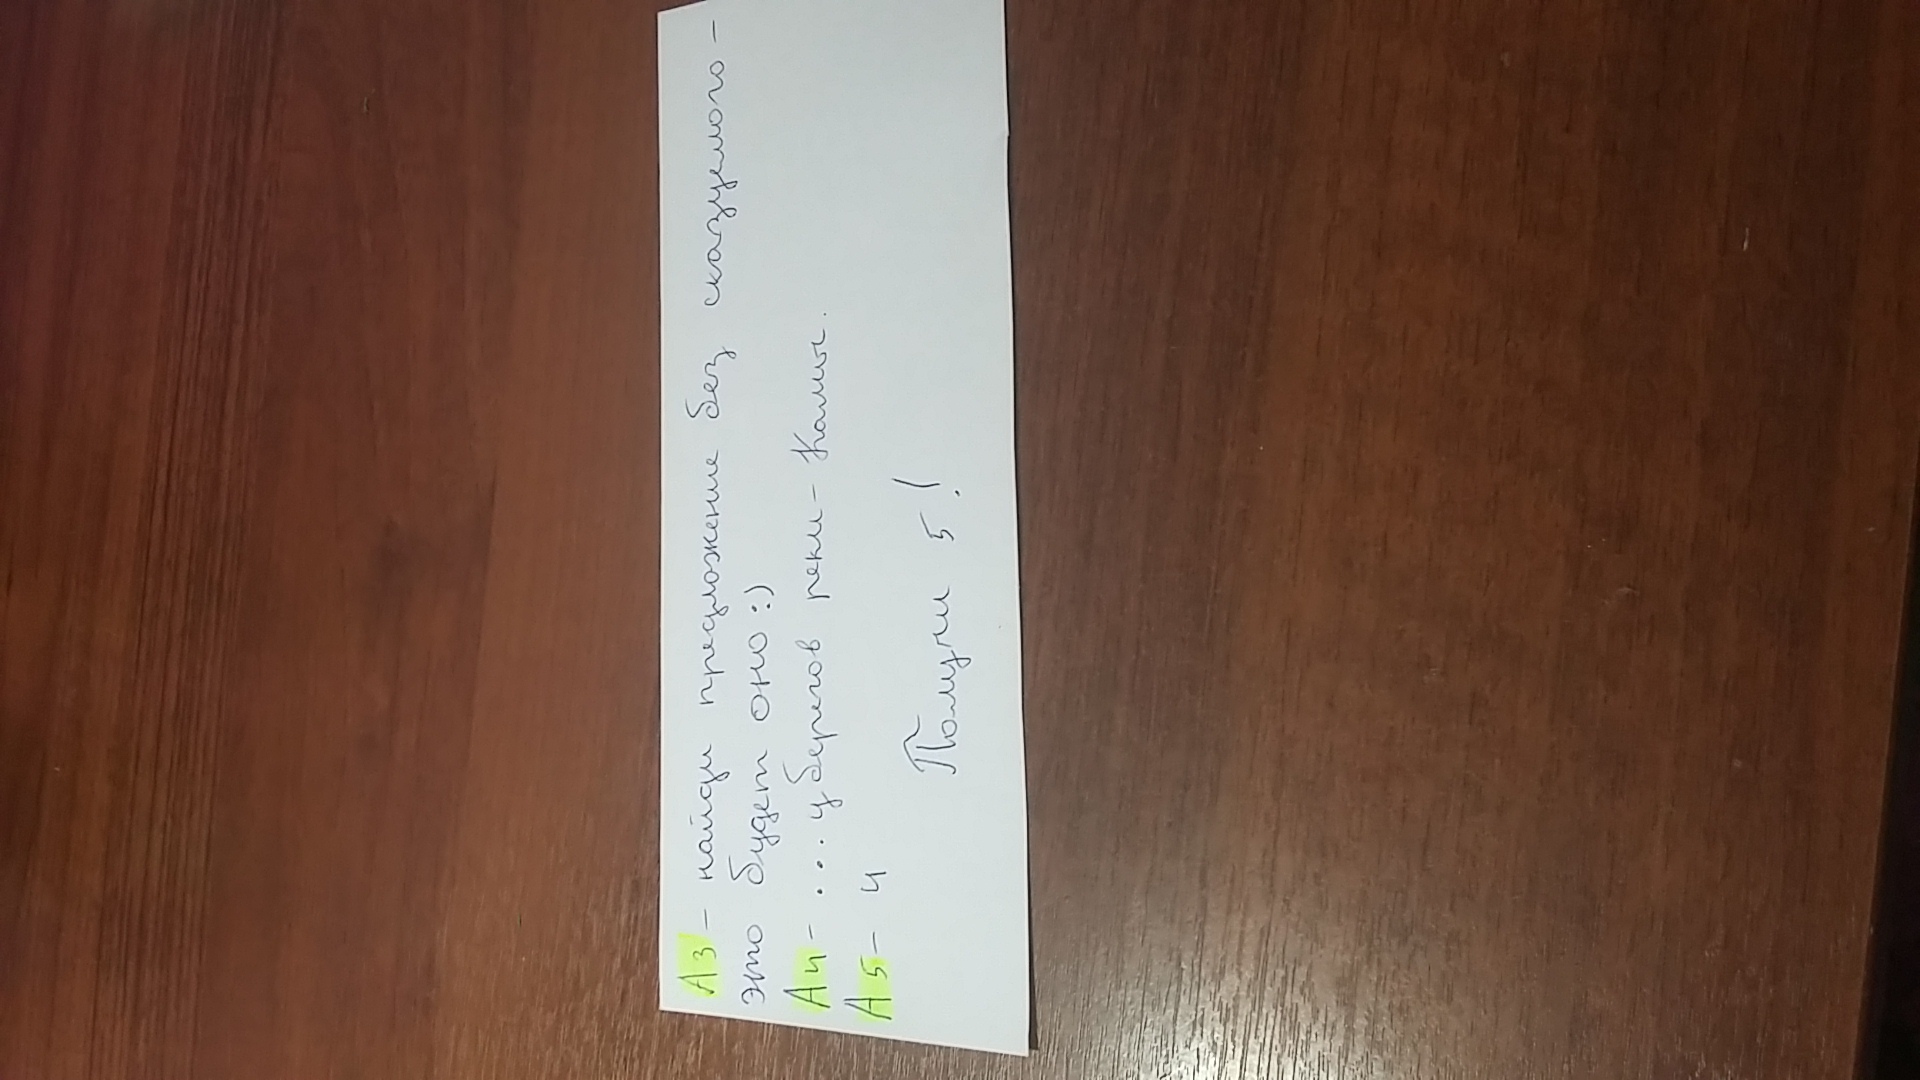 А3 - найди предложение без сказуемого -
это будет оно :)
А4 - ... у берегов реки - Камы.
А5 - 4
Получи 5!